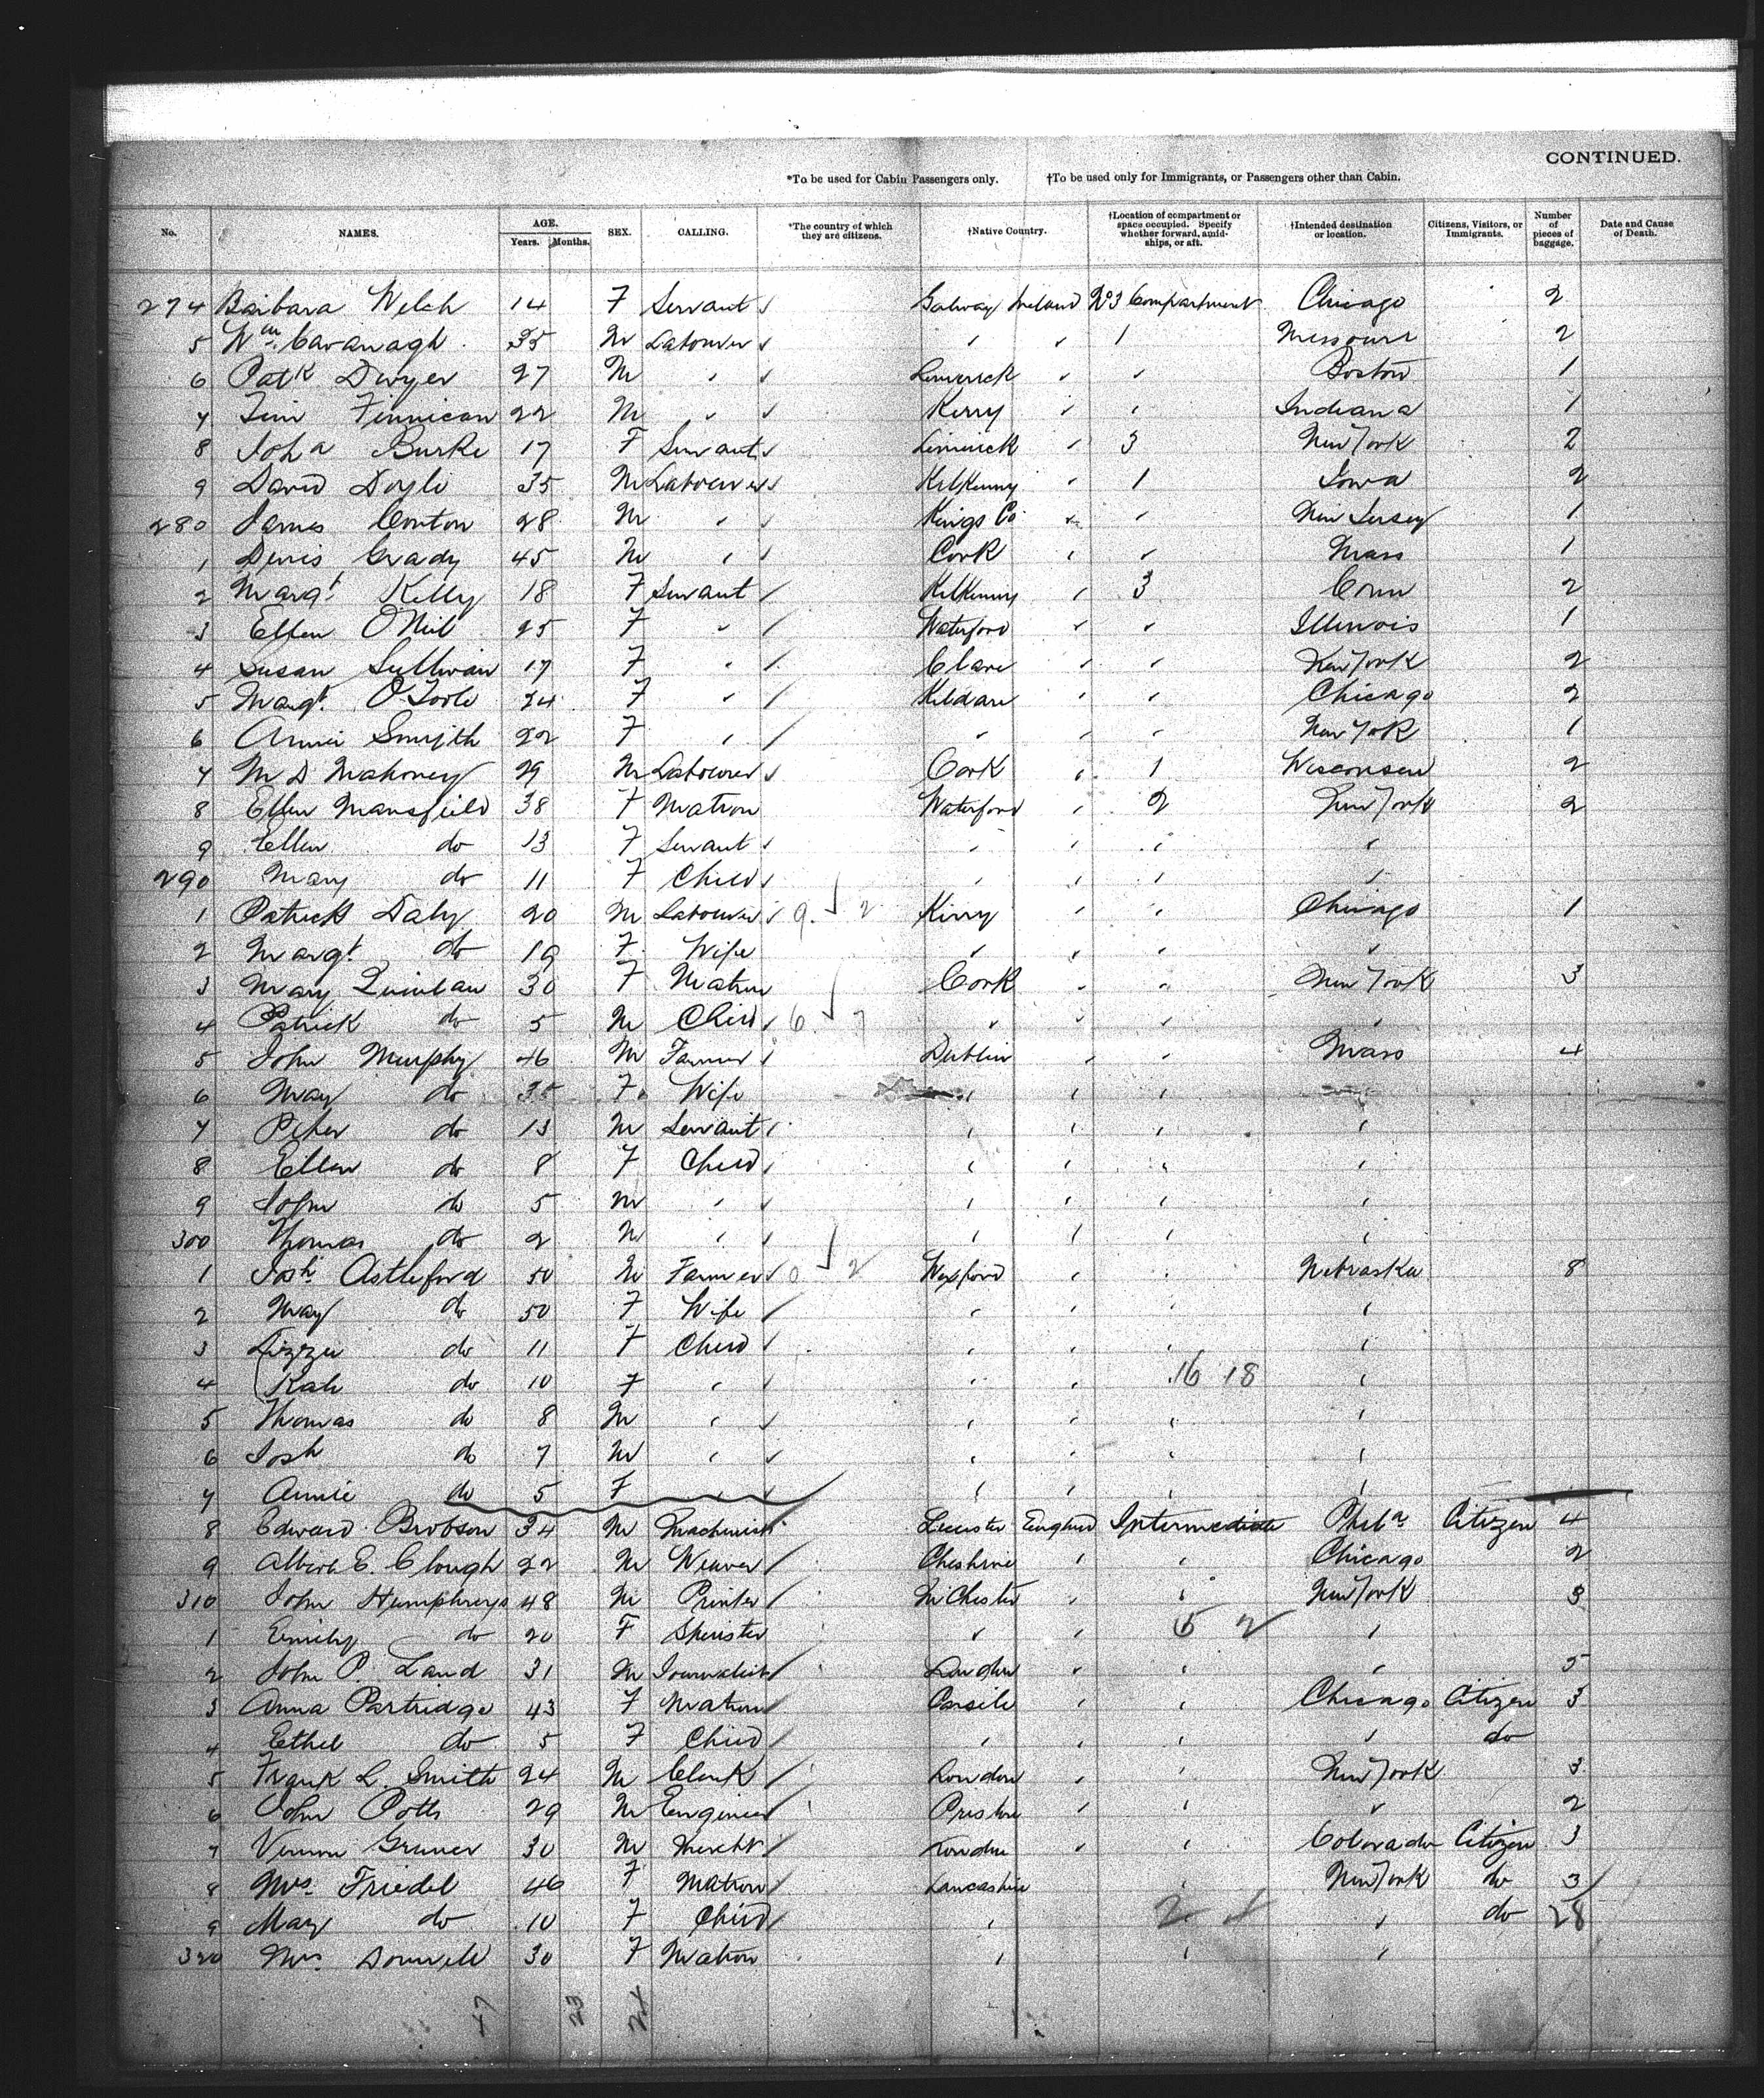 CONTINUED.
*To be used for Cabin Passengers only. †To be used only for Immigrants, or Passengers other than Cabin.
No. NAMES. AGE. Years. Months. SEX. CALLING. *The country of which they are citizens. †Native Country. †Location of compartment or space occupied. Specify whether forward, amidships, or aft. †Intended destination or location. Citizens, Visitors, or Immigrants. Number of pieces of baggage. Date and Cause of Death.
274 Barbara Welch 14 F Servant Galway Ireland No 3 Compartment Chicago 2
5 Wm Cavanagh 35 M Labourer " " 1 Missouri 2
6 Patk Dwyer 27 M " Limerick " " Boston 1
7 Tim Finnican 22 M " Kerry " " Indiana 1
8 Joha Burke 17 F Servant Limerick " 3 New York 2
9 David Doyle 35 M Labourer Kilkenny " 1 Iowa 2
280 James Conton 28 M " Kings Co " " New Jersey 1
1 Denis Grady 45 M " Cork " " Mass 1
2 Margt Kelly 18 F Servant Kilkenny " 3 Conn 2
3 Ellen O'Neil 25 F " Waterford " " Illinois 1
4 Susan Sullivan 17 F " Clare " " New York 2
5 Margt O'Toole 24 F " Kildare " " Chicago 2
6 Annie Smyth 22 F " " " " New York 1
7 M D Mahoney 29 M Labourer Cork " 1 Wisconsin 2
8 Ellen Mansfield 38 F Matron Waterford " 2 New York 2
9 Ellen do 13 F Servant " " " "
290 Mary do 11 F Child " " " "
1 Patrick Daly 20 M Labourer 9 2 Kerry " " Chicago 1
2 Margt do 19 F Wife " " " "
3 Mary Quinlan 30 F Matron Cork " " New York 3
4 Patrick do 5 M Child 6 " " " "
5 John Murphy 46 M Farmer Dublin " " Mass 4
6 May do 35 F Wife " " "
7 Peter do 13 M Servant " " " "
8 Ellen do 8 F Child " " " "
9 John do 5 M " " " " "
300 Thomas do 2 M " " " " "
1 Josh Astleford 50 M Farmer 0 2 Wexford " " Nebraska 8
2 May do 50 F Wife " " " "
3 Lizzie do 11 F Child " " " "
4 Kate do 10 F " " " 16 18 "
5 Thomas do 8 M " " " " "
6 Josh do 7 M " " " " "
7 Annie do 5 F " " " " "
8 Edward Brobson 34 M Machinist Leicester England Intermediate Phila Citizen 4
9 Albert E. Clough 22 M Weaver Cheshire " " Chicago 2
310 John Humphreys 48 M Printer MChester " " New York 3
1 Emily do 20 F Spinster " " 6 2 "
2 John P. Land 31 M Journalist London " " " 5
3 Anna Partridge 43 F Matron " " Chicago Citizen 3
4 Ethel do 5 F Child " " " " do
5 Frank L. Smith 24 M Clerk London " " New York 3
6 John Potts 29 M Engineer " " " 2
7 Vernon 30 M Mercht London " " Colorado Citizen 3
8 Mrs Friedel 46 F Matron Lancashire " New York do 3
9 May do 10 F Child " 2 " do 28
320 Mrs 30 F Matron " " "
47 23 24